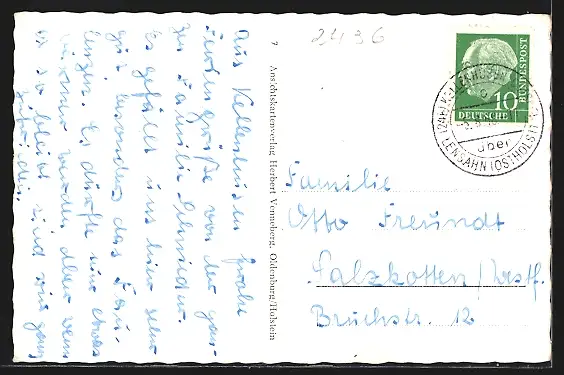 2436
Aus Kellenhusen frohe
Ferien grüße von der gan-
zen Familie
Es gefällt uns hier sehr
gut besonders das Faul-
lenzen. Es dürfte nur etwas
wärmer werden aber wenn
es so bleibt sind wir ganz
zufrieden.
7 Ansichtskartenverlag Herbert Venneberg, Oldenburg/Holstein
10
DEUTSCHE BUNDESPOST
(24b) KELLENHUSEN
über
LENSAHN (OSTHOLST)
Familie
Otto Freundt
Salzkotten/Westf.
Bruchstr. 12